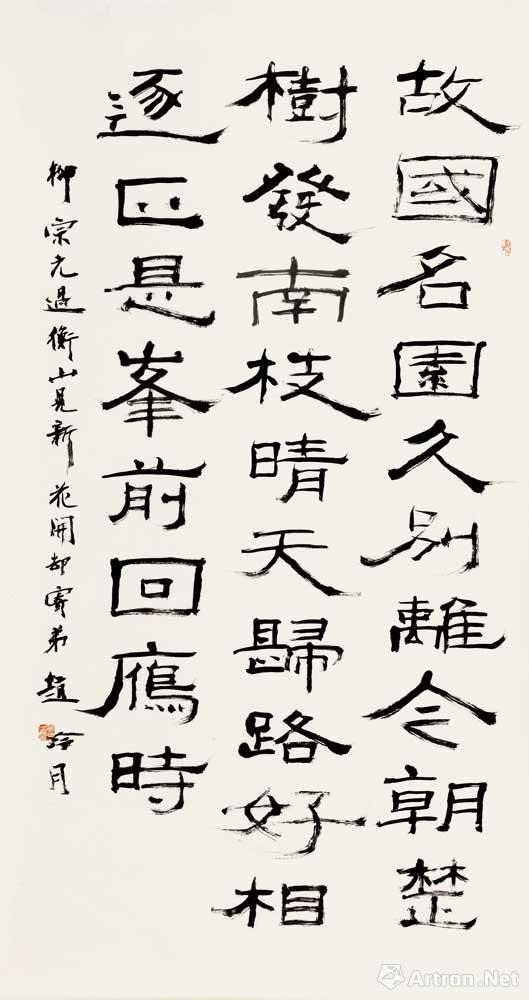 故國名園久別離今朝楚
樹發南枝晴天歸路好相
逐正是峯前回鴈時
柳宗元過衡山見新花開却寄弟 趙冷月
Artron.Net